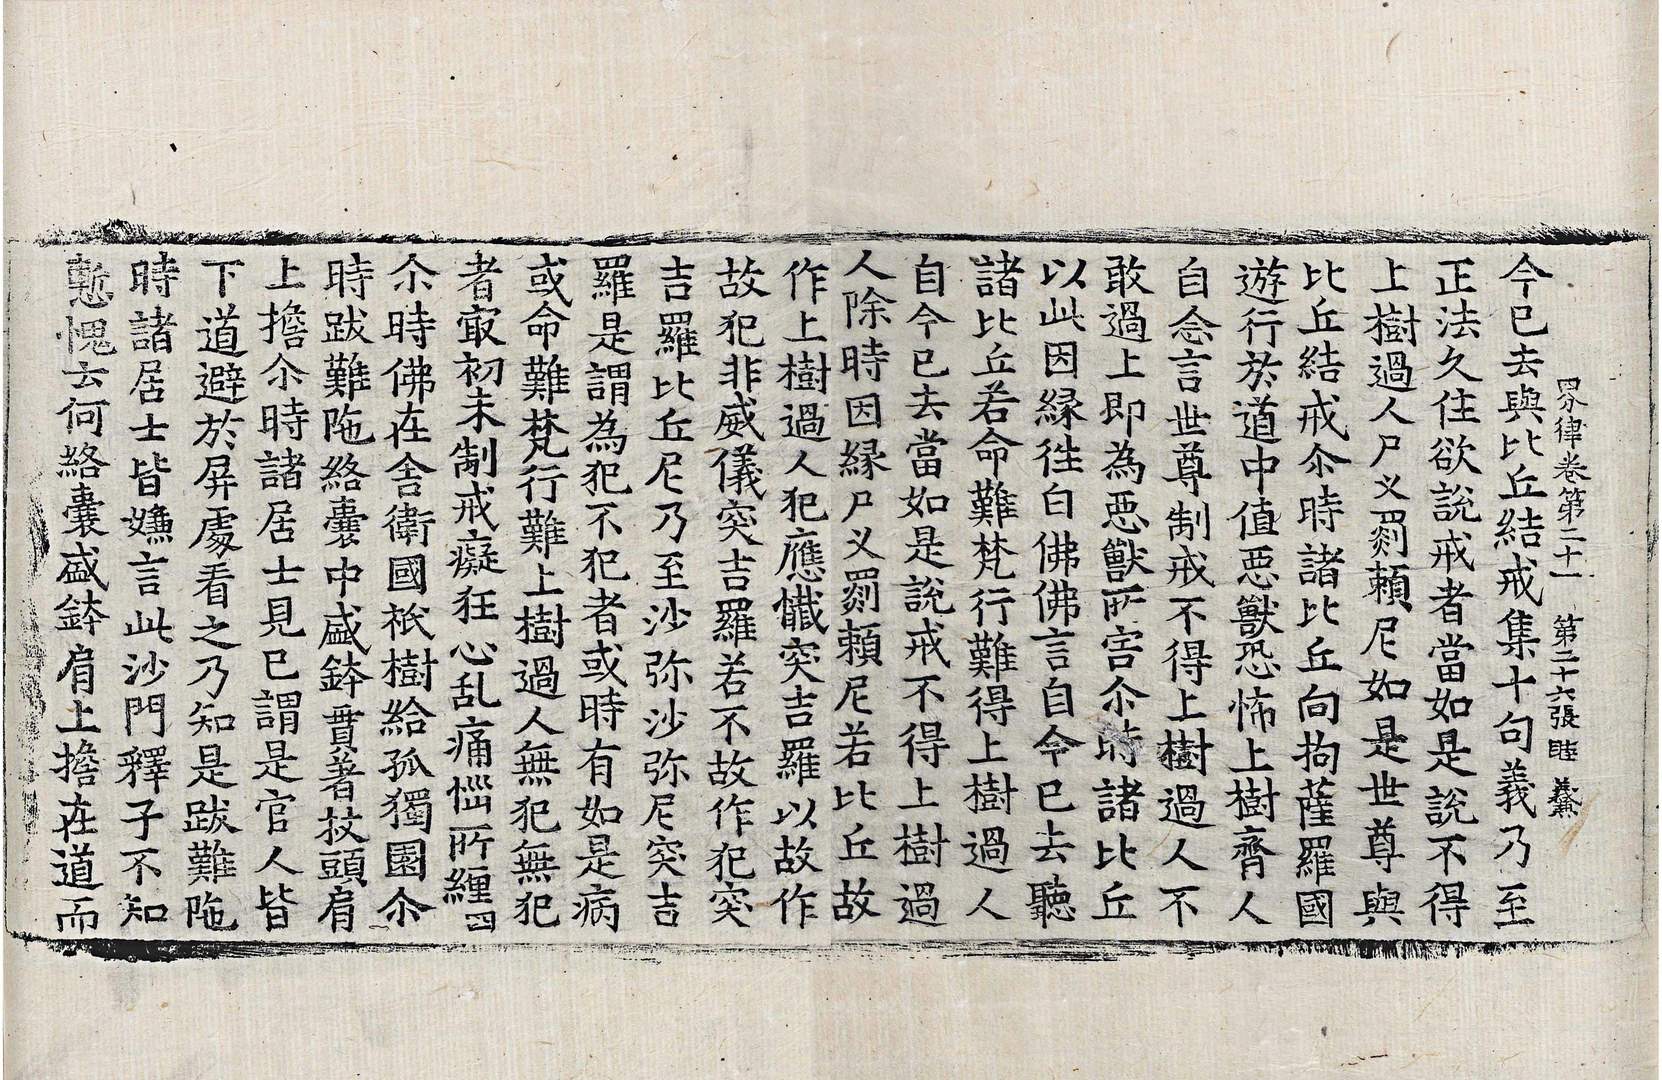 四分律卷第二十一 第二十六張 睦
今已去與比丘結戒集十句義乃至
正法久住欲說戒者當如是說不得
上樹過人尸叉罽賴尼如是世尊與
比丘結戒尒時諸比丘向拘薩羅國
遊行於道中值惡獸恐怖上樹齊人
自念言世尊制戒不得上樹過人不
敢過上即為惡獸所害尒時諸比丘
以此因緣往白佛佛言自今已去聽
諸比丘若命難梵行難得上樹過人
自今已去當如是說戒不得上樹過
人除時因緣尸叉罽賴尼若比丘故
作上樹過人犯應懺突吉羅以故作
故犯非威儀突吉羅若不故作犯突
吉羅比丘尼乃至沙弥沙弥尼突吉
羅是謂為犯不犯者或時有如是病
或命難梵行難上樹過人無犯無犯
者㝡初未制戒癡狂心乱痛惱所纏 四
尒時佛在舍衛國祇樹給孤獨園尒
時跋難陁絡囊中盛鉢貫著杖頭肩
上擔尒時諸居士見已謂是官人皆
下道避於屏處看之乃知是跋難陁
時諸居士皆嫌言此沙門釋子不知
慙愧云何絡囊盛鉢肩上擔在道而